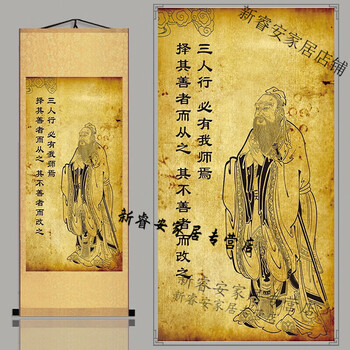 三人行 必有我师焉
择其善者而从之 其不善者而改之
三人行 必有我师焉
择其善者而从之 其不善者而改之
新睿安家居店铺
新睿安家居专营店
新睿安家居店铺